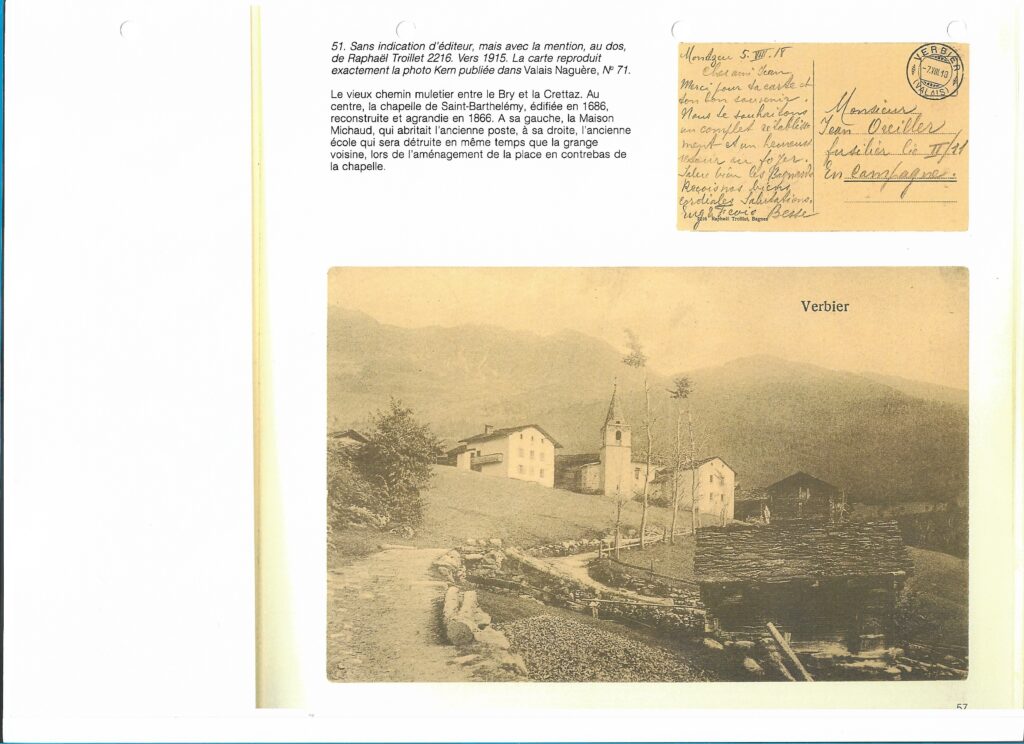 51. Sans indication d'éditeur, mais avec la mention, au dos,
de Raphaël Troillet 2216. Vers 1915. La carte reproduit
exactement la photo Kern publiée dans Valais Naguère, N° 71.
Le vieux chemin muletier entre le Bry et la Crettaz. Au
centre, la chapelle de Saint-Barthelémy, édifiée en 1686,
reconstruite et agrandie en 1866. A sa gauche, la Maison
Michaud, qui abritait l'ancienne poste, à sa droite, l'ancienne
école qui sera détruite en même temps que la grange
voisine, lors de l'aménagement de la place en contrebas de
la chapelle.
5. VIII. 18
Cher ami Jean
Merci pour ta carte et
ton bon souvenir.
Nous te souhaitons
un complet rétablisse
ment et un heureux
retour au foyer.
Salue bien les Bagnards
Reçois nos biens
cordiales Salutations.
Besse
2216 Raphaël Troillet, Bagnes
VERBIER
(VALAIS)
Monsieur
Jean Oreiller
fusilier Cie II/
En Campagne.
Verbier
57